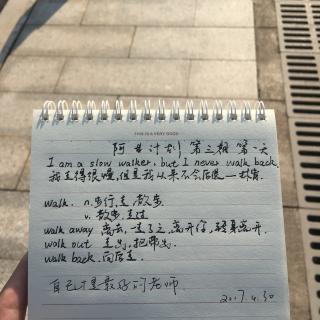 THIS IS A VERY GOOD
阿甘计划 第三期 第一天
I am a slow walker, but I never walk back.
我走得很慢,但是我从来不会后退一
walk. n.步行,走,散步.
v. 散步,走过
walk away 离去,一走了之,离开你,转身离开.
walk out 走出,把带出.
walk back.向后走.
自己才是最好的老师.
2017.4.30